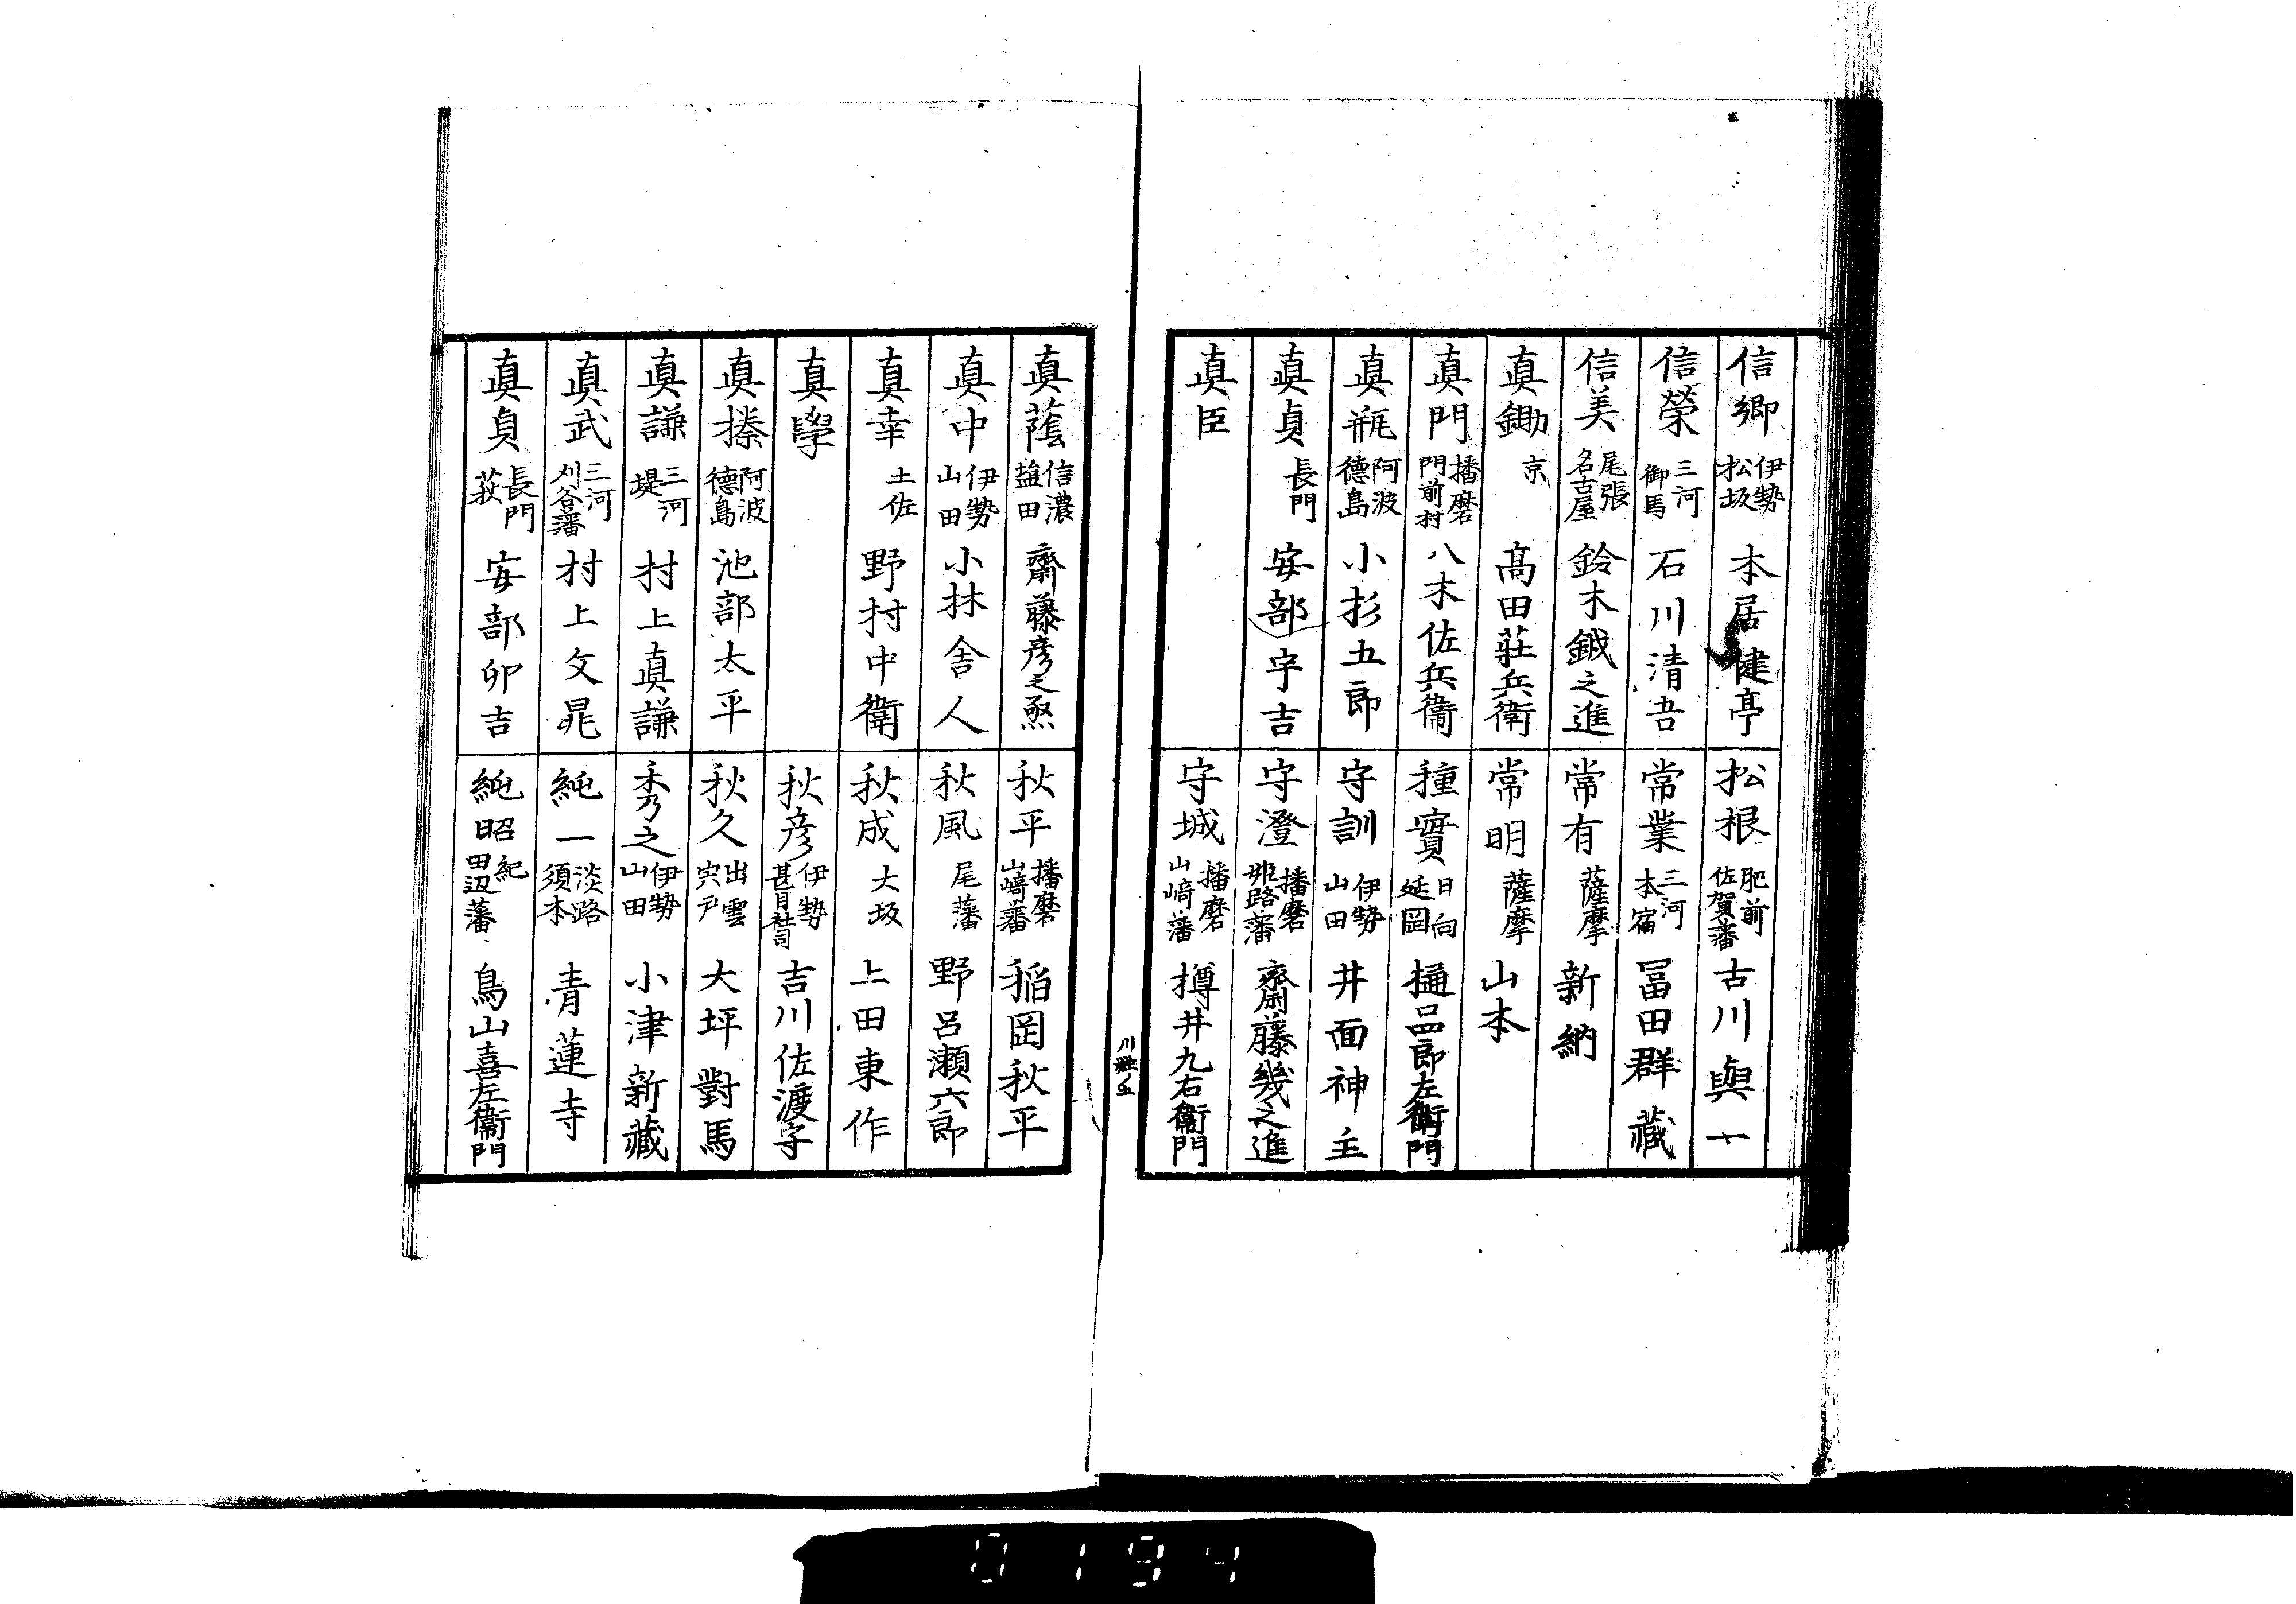 信郷 伊勢松坂 本居健亭
信榮 三河御馬 石川清吾
信美 尾張名古屋 鈴木鉞之進
真鋤 京 髙田莊兵衛
真門 播磨門前村 八木佐兵衞
真瓶 阿波德島 小杉五郎
真貞 長門 安部宇吉
真臣
松根 肥前佐賀藩 古川與一
常業 三河本宿 冨田群藏
常有 薩摩 新納
常明 薩摩 山本
種實 日向延岡 樋口四郎左衞門
守訓 伊勢山田 井面神主
守澄 播磨姫路藩 齋藤幾之進
守城 播磨山﨑藩 樽井九右衞門
真蔭 信濃塩田 齋藤彦之丞
真中 伊勢山田 小林舎人
真幸 土佐 野村中衛
真學
真搸 阿波德島 池部太平
真謙 三河堤 村上真謙
真武 三河刈谷藩 村上文晁
真貞 長門萩 安部卯吉
秋平 播磨山﨑藩 稲岡秋平
秋風 尾藩 野呂瀬六郎
秋成 大坂 上田東作
秋彦 伊勢甚目社司 吉川佐渡守
秋久 出雲宍戸 大坪對馬
秀之 伊勢山田 小津新藏
純一 淡路須本 青蓮寺
純昭 紀田辺藩 鳥山喜左衞門
0194